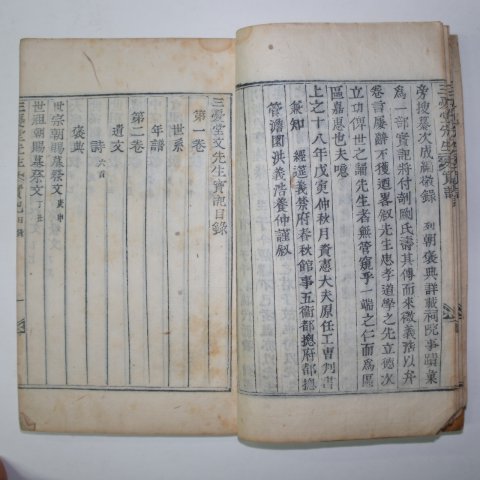 旁搜纂次成廟徵錄 列朝褒典詳載祠院事蹟彙
爲一部實記將付剞劂氏壽其傳而來徵義浩以弁
卷首屢辭不獲迺畧叙先生忠孝道學之先立德次
立功俾世之誦先生者無管窺乎一端之仁而爲區
區嘉惠也夫噫
上之十八年戊寅仲秋月資憲大夫原任工曹判書
兼知 經筵義禁府春秋館事五衛都摠府都摠
管澹園洪義浩養仲謹叙
三憂堂文先生實記目錄
第一卷
世系
年譜
第二卷
遺文
詩 六首
褒典
世宗朝賜墓祭文 庚申
世祖朝賜墓祭文 丁丑